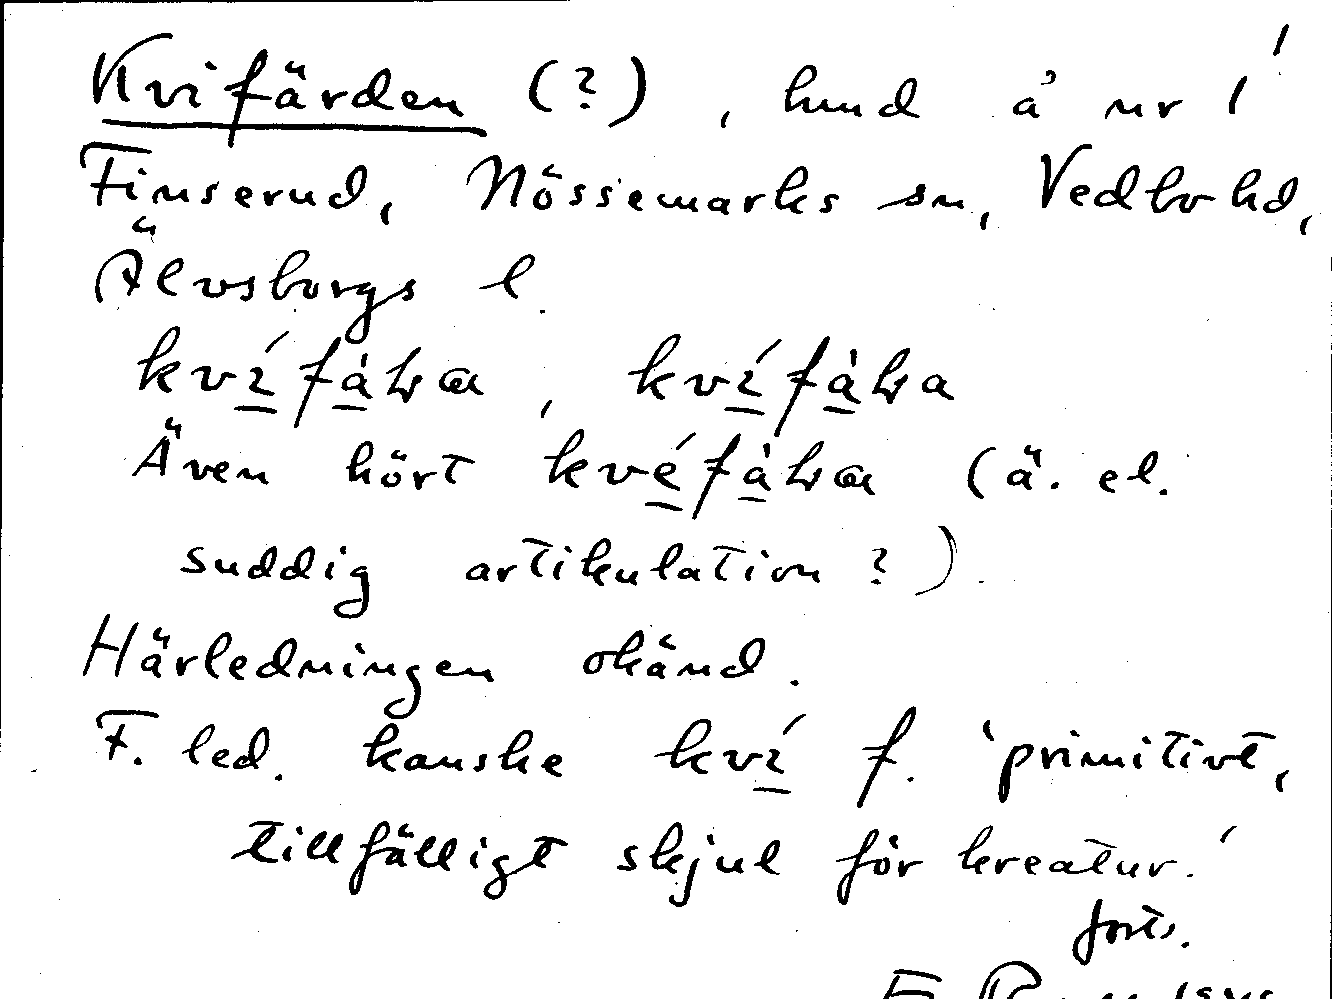 Kvifärden (?), hmd å nr 1'
Finserud, Nössemarks sn, Vedbo hd,
Älvsborgs l.
Även hört (ä. el.
suddig artikulation ?).
Härledningen okänd.
F. led. kanske kví f. 'primitivt,
tillfälligt skjul för kreatur.'
forts.